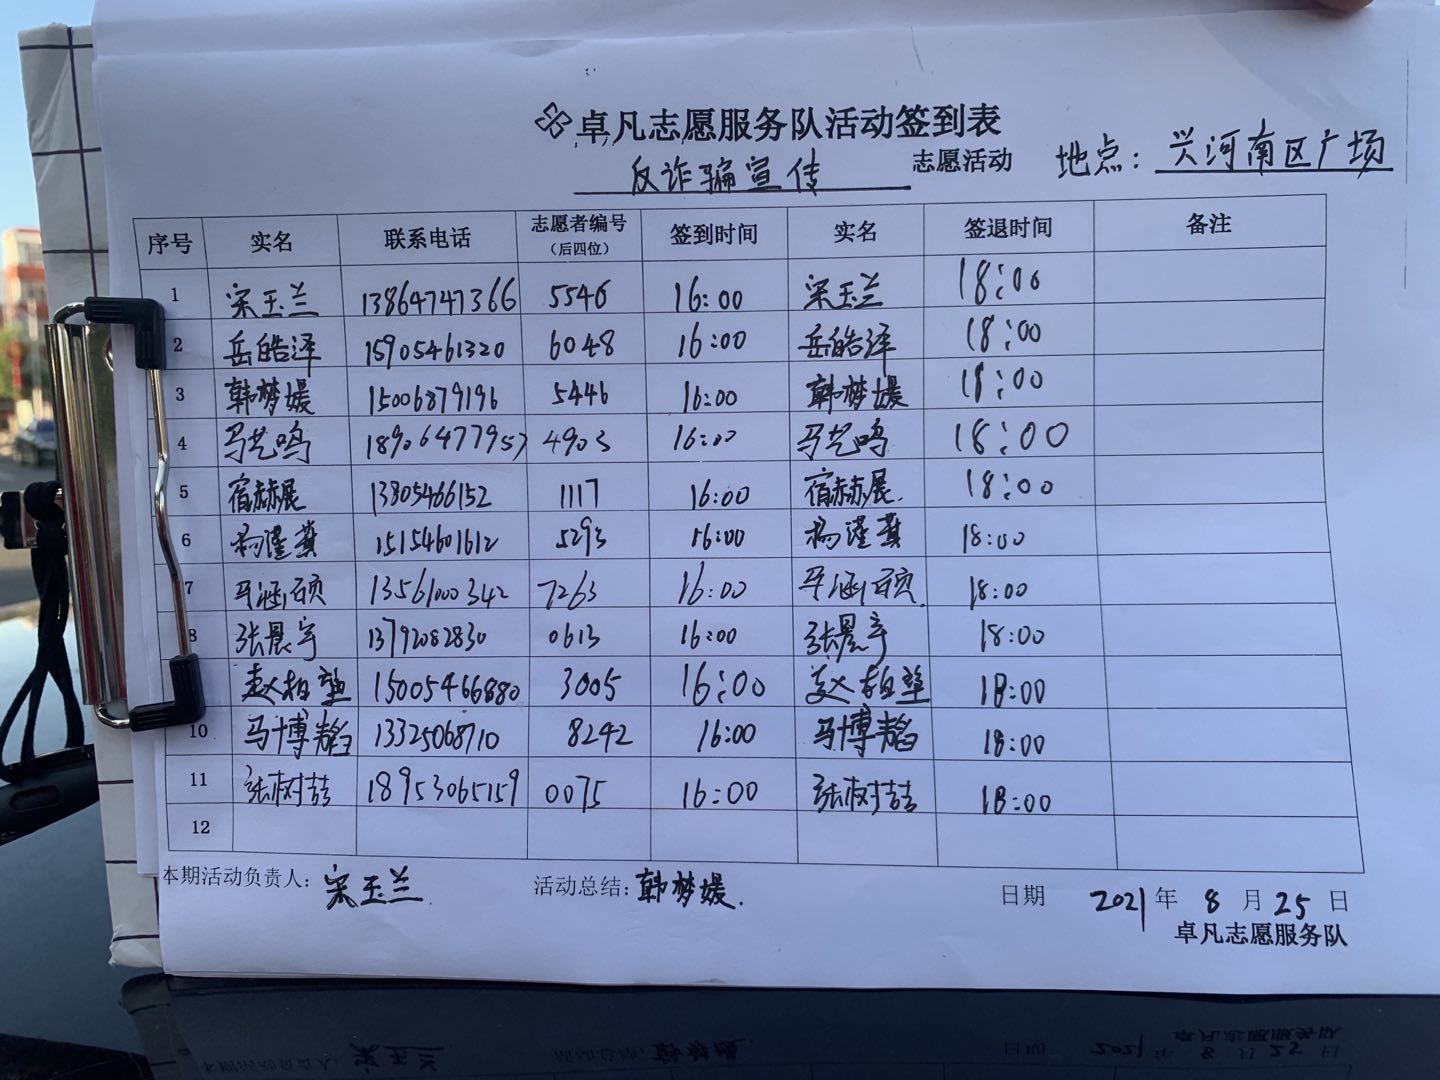 卓凡志愿服务队活动签到表
反诈骗宣传 志愿活动 地点：兴河南区广场
序号 实名 联系电话 志愿者编号（后四位） 签到时间 实名 签退时间 备注
1 宋玉兰 13864747366 5546 16:00 宋玉兰 18:00
2 岳皓泽 15905461320 6048 16:00 岳皓泽 18:00
3 韩梦媛 15006879196 5446 16:00 韩梦媛 18:00
4 马艺鸣 18906477957 4903 16:00 马艺鸣 18:00
5 宿赫展 13805466152 1117 16:00 宿赫展 18:00
6 杨瑾萁 15154601612 5293 16:00 杨瑾萁 18:00
7 马涵硕 13561000342 7263 16:00 马涵硕 18:00
8 张景宇 13792082830 0613 16:00 张景宇 18:00
赵柏堃 15005466880 3005 16:00 赵柏堃 18:00
10 马博韬 13325068710 8242 16:00 马博韬 18:00
11 张树喆 18953065159 0075 16:00 张树喆 18:00
12
本期活动负责人：宋玉兰. 活动总结：韩梦媛. 日期 2021年8月25日
卓凡志愿服务队